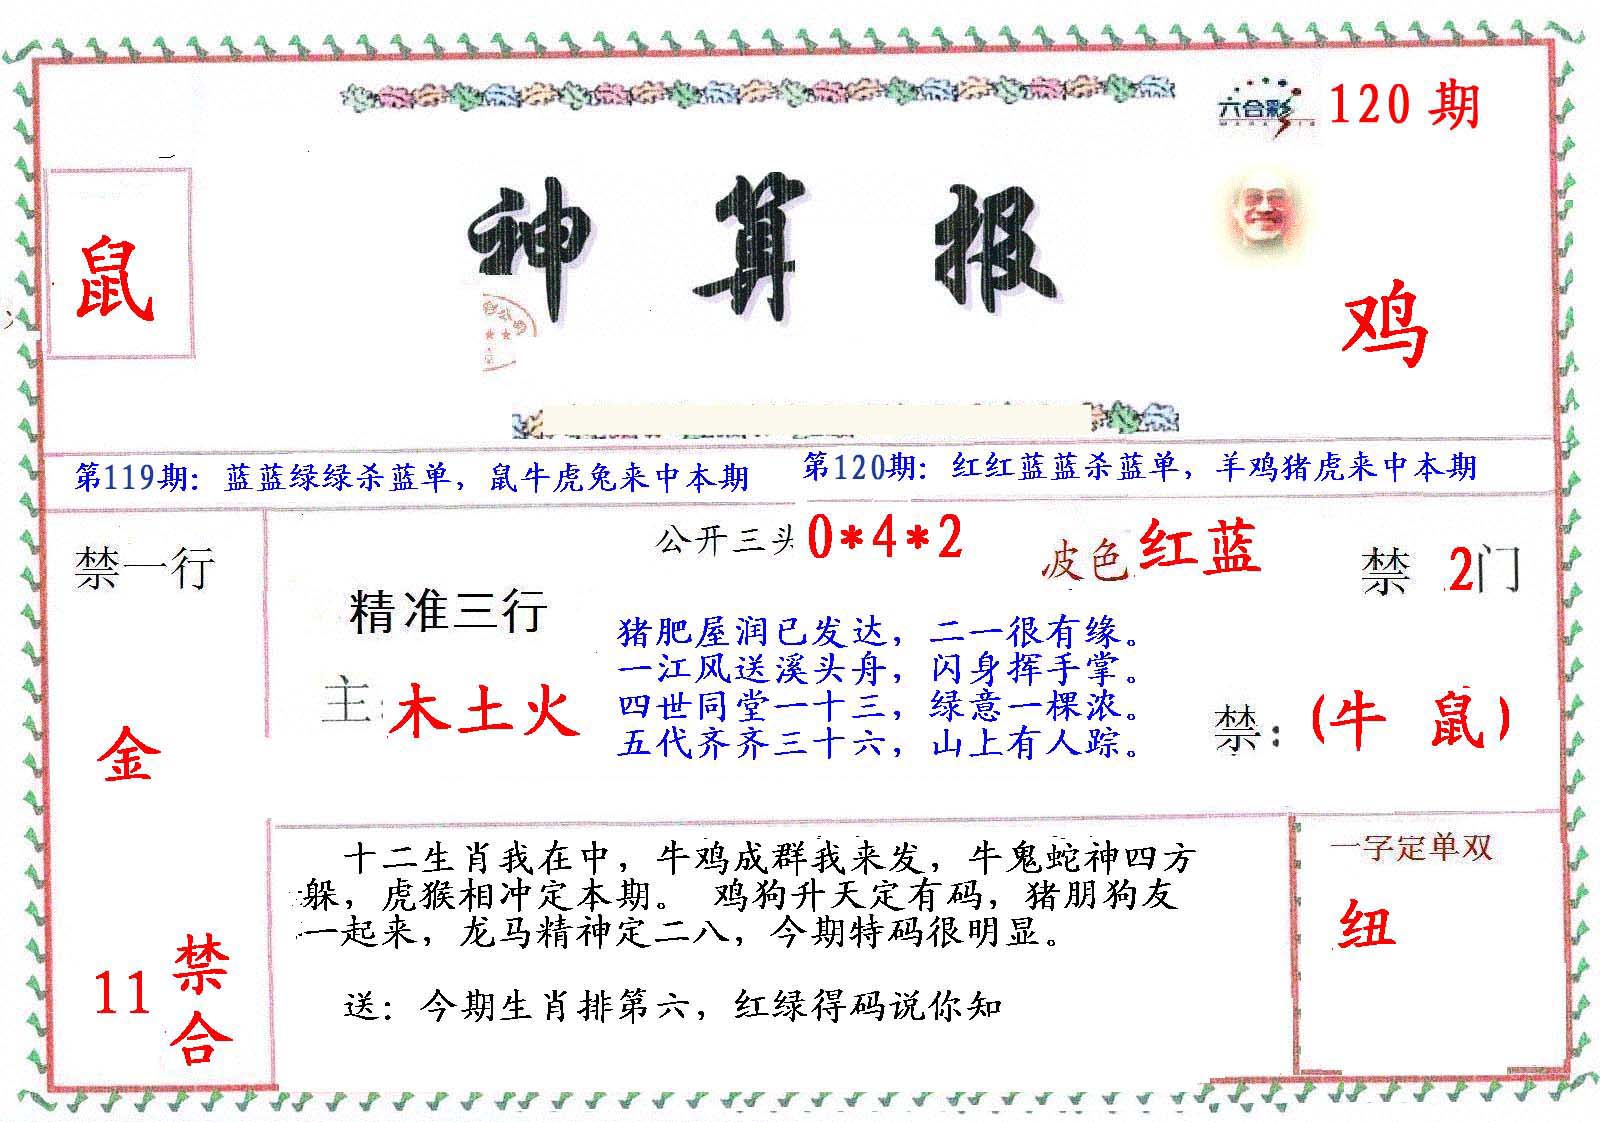 六合彩
120 期
鼠
神算报
鸡
第119期：蓝蓝绿绿杀蓝单，鼠牛虎兔来中本期
第120期：红红蓝蓝杀蓝单，羊鸡猪虎来中本期
禁一行
金
11 禁合
精准三行
主:木土火
公开三头 0*4*2
波色 红蓝
禁 2门
猪肥屋润已发达，二一很有缘。
一江风送溪头舟，闪身挥手掌。
四世同堂一十三，绿意一棵浓。
五代齐齐三十六，山上有人踪。
禁:(牛 鼠)
十二生肖我在中，牛鸡成群我来发，牛鬼蛇神四方
躲，虎猴相冲定本期。 鸡狗升天定有码，猪朋狗友
一起来，龙马精神定二八，今期特码很明显。
送：今期生肖排第六，红绿得码说你知
一字定单双
纽